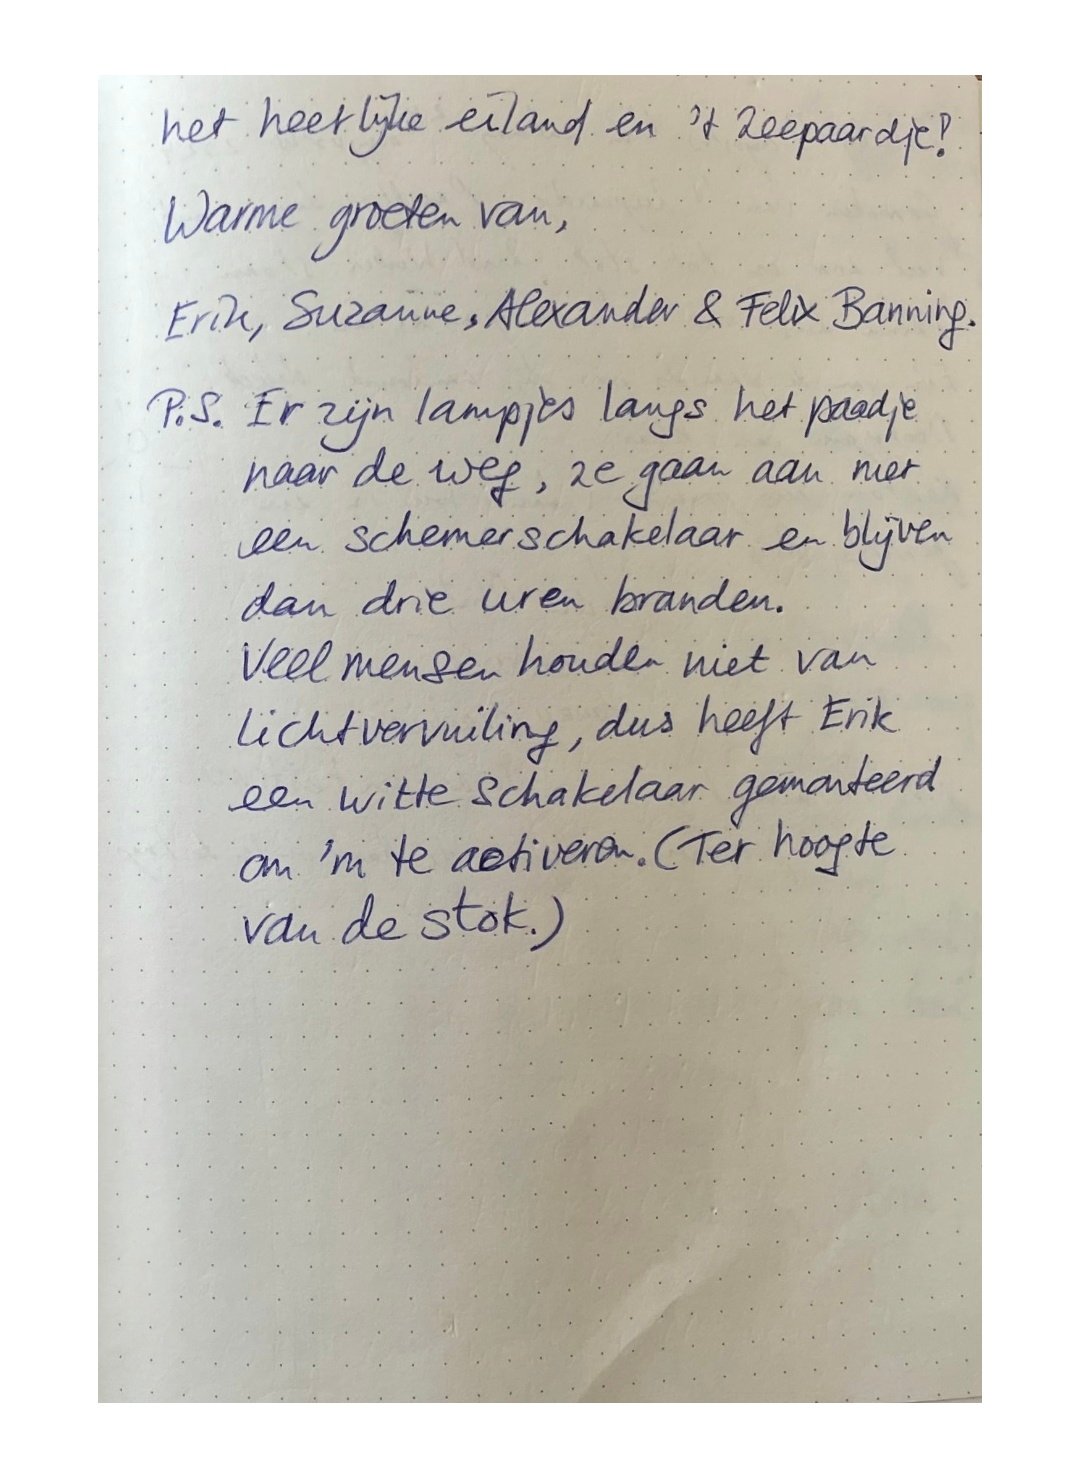 het heerlijke eiland en 't Zeepaardje!
Warme groeten van,
Erik, Suzanne, Alexander & Felix Banning.
P.S. Er zijn lampjes langs het paadje
naar de weg, ze gaan aan met
een schemerschakelaar en blijven
dan drie uren branden.
Veel mensen houden niet van
lichtvervuiling, dus heeft Erik
een witte schakelaar gemonteerd
om 'm te activeren. (Ter hoogte
van de stok.)